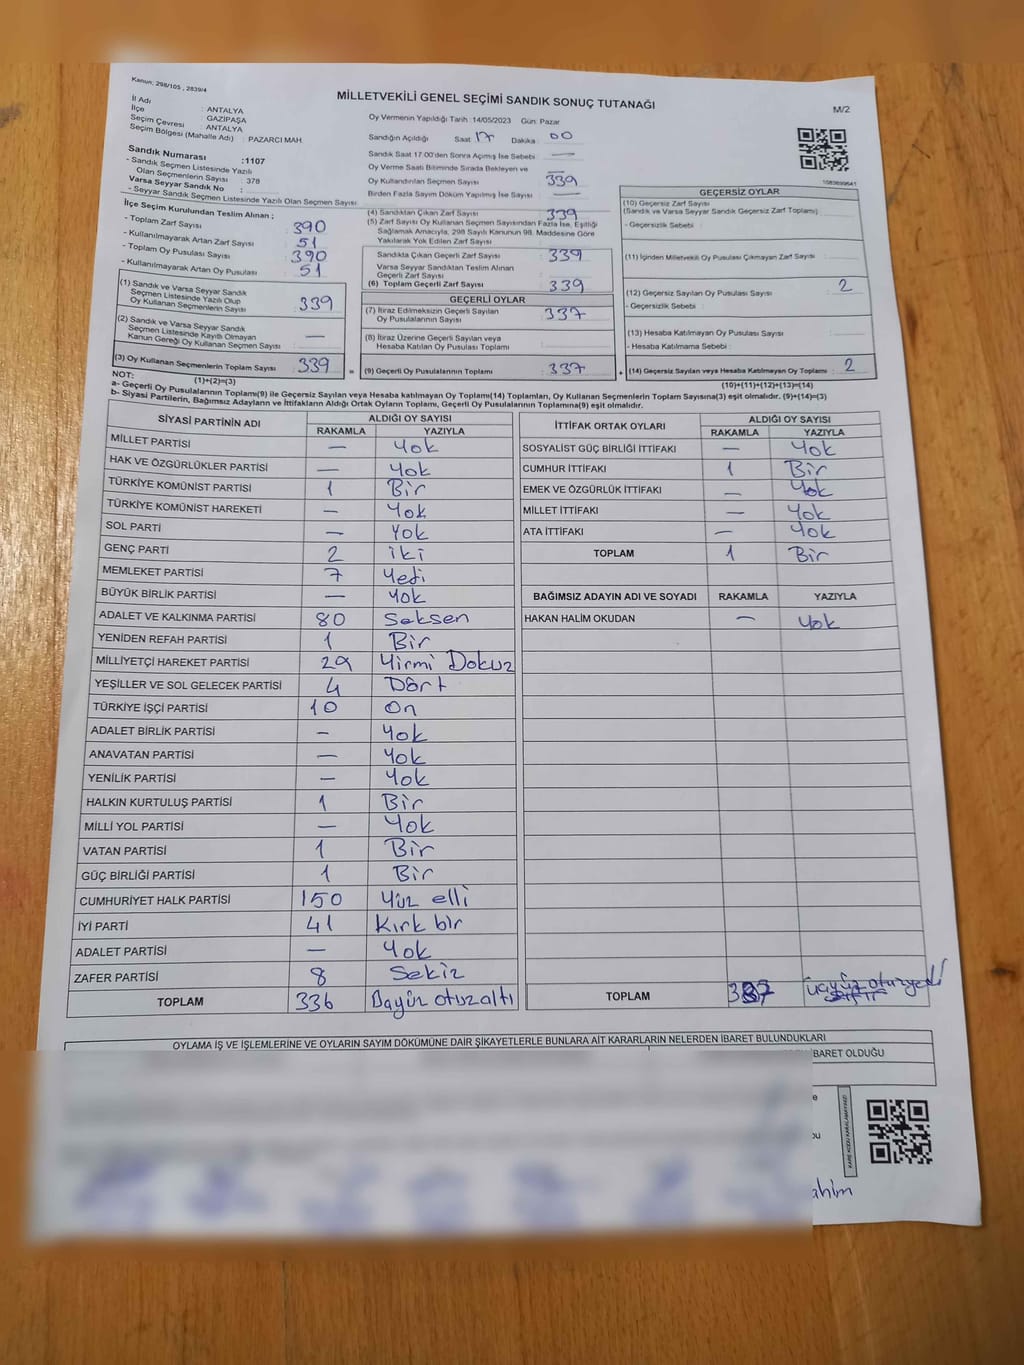 Kanun: 298/105 , 2839/4
MİLLETVEKİLİ GENEL SEÇİMİ SANDIK SONUÇ TUTANAĞI
M/2
İl Adı : ANTALYA
İlçe : GAZİPAŞA
Seçim Çevresi : ANTALYA
Seçim Bölgesi (Mahalle Adı) : PAZARCI MAH.
Sandık Numarası :1107
- Sandık Seçmen Listesinde Yazılı
Olan Seçmenlerin Sayısı : 378
Varsa Seyyar Sandık No :
- Seyyar Sandık Seçmen Listesinde Yazılı Olan Seçmen Sayısı
Oy Vermenin Yapıldığı Tarih :14/05/2023 Gün: Pazar
Sandığın Açıldığı Saat 17 Dakika : 00
Sandık Saat 17.00'den Sonra Açımış İse Sebebi : —
Oy Verme Saati Bitiminde Sırada Bekleyen ve
Oy Kullandırılan Seçmen Sayısı : 339
Birden Fazla Sayım Döküm Yapılmış İse Sayısı : —
1083699641
İlçe Seçim Kurulundan Teslim Alınan ;
- Toplam Zarf Sayısı : 390
- Kullanılmayarak Artan Zarf Sayısı : 51
- Toplam Oy Pusulası Sayısı : 390
- Kullanılmayarak Artan Oy Pusulası : 51
(1) Sandık ve Varsa Seyyar Sandık
Seçmen Listesinde Yazılı Olup
Oy Kullanan Seçmenlerin Sayısı : 339
(2) Sandık ve Varsa Seyyar Sandık
Seçmen Listesinde Kayıtlı Olmayan
Kanun Gereği Oy Kullanan Seçmen Sayısı : —
(3) Oy Kullanan Seçmenlerin Toplam Sayısı : 339
(1)+(2)=(3)
(4) Sandıktan Çıkan Zarf Sayısı : 339
(5) Zarf Sayısı Oy Kullanan Seçmen Sayısından Fazla İse, Eşitliği
Sağlamak Amacıyla, 298 Sayılı Kanunun 98. Maddesine Göre
Yakılarak Yok Edilen Zarf Sayısı :
Sandıkta Çıkan Geçerli Zarf Sayısı : 339
Varsa Seyyar Sandıktan Teslim Alınan
Geçerli Zarf Sayısı
(6) Toplam Geçerli Zarf Sayısı : 339
GEÇERLİ OYLAR
(7) İtiraz Edilmeksizin Geçerli Sayılan
Oy Pusulalarının Sayısı : 337
(8) İtiraz Üzerine Geçerli Sayılan veya
Hesaba Katılan Oy Pusulası Toplamı :
= (9) Geçerli Oy Pusulalarının Toplamı : 337
GEÇERSİZ OYLAR
(10) Geçersiz Zarf Sayısı
(Sandık ve Varsa Seyyar Sandık Geçersiz Zarf Toplamı)
- Geçersizlik Sebebi :
(11) İçinden Milletvekili Oy Pusulası Çıkmayan Zarf Sayısı :
(12) Geçersiz Sayılan Oy Pusulası Sayısı : 2
- Geçersizlik Sebebi :
(13) Hesaba Katılmayan Oy Pusulası Sayısı :
- Hesaba Katılmama Sebebi :
+ (14) Geçersiz Sayılan veya Hesaba Katılmayan Oy Toplamı : 2
(10)+(11)+(12)+(13)=(14)
NOT:
a- Geçerli Oy Pusulalarının Toplamı(9) ile Geçersiz Sayılan veya Hesaba katılmayan Oy Toplamı(14) Toplamları, Oy Kullanan Seçmenlerin Toplam Sayısına(3) eşit olmalıdır. (9)+(14)=(3)
b- Siyasi Partilerin, Bağımsız Adayların ve İttifakların Aldığı Ortak Oyların Toplamı, Geçerli Oy Pusulalarının Toplamına(9) eşit olmalıdır.
SİYASİ PARTİNİN ADI ALDIĞI OY SAYISI
RAKAMLA YAZIYLA
MİLLET PARTİSİ — Yok
HAK VE ÖZGÜRLÜKLER PARTİSİ — Yok
TÜRKİYE KOMÜNİST PARTİSİ 1 Bir
TÜRKİYE KOMÜNİST HAREKETİ — Yok
SOL PARTİ — Yok
GENÇ PARTİ 2 iki
MEMLEKET PARTİSİ 7 Yedi
BÜYÜK BİRLİK PARTİSİ — Yok
ADALET VE KALKINMA PARTİSİ 80 Seksen
YENİDEN REFAH PARTİSİ 1 Bir
MİLLİYETÇİ HAREKET PARTİSİ 29 Yirmi Dokuz
YEŞİLLER VE SOL GELECEK PARTİSİ 4 Dört
TÜRKİYE İŞÇİ PARTİSİ 10 On
ADALET BİRLİK PARTİSİ — Yok
ANAVATAN PARTİSİ — Yok
YENİLİK PARTİSİ — Yok
HALKIN KURTULUŞ PARTİSİ 1 Bir
MİLLİ YOL PARTİSİ — Yok
VATAN PARTİSİ 1 Bir
GÜÇ BİRLİĞİ PARTİSİ 1 Bir
CUMHURİYET HALK PARTİSİ 150 Yüz elli
İYİ PARTİ 41 Kırk bir
ADALET PARTİSİ — Yok
ZAFER PARTİSİ 8 Sekiz
TOPLAM 336 otuz altı
İTTİFAK ORTAK OYLARI ALDIĞI OY SAYISI
RAKAMLA YAZIYLA
SOSYALİST GÜÇ BİRLİĞİ İTTİFAKI — Yok
CUMHUR İTTİFAKI 1 Bir
EMEK VE ÖZGÜRLÜK İTTİFAKI — Yok
MİLLET İTTİFAKI — Yok
ATA İTTİFAKI — Yok
TOPLAM 1 Bir
BAĞIMSIZ ADAYIN ADI VE SOYADI RAKAMLA YAZIYLA
HAKAN HALİM OKUDAN — Yok
TOPLAM 337 üçyüz otuzyedi
OYLAMA İŞ VE İŞLEMLERİNE VE OYLARIN SAYIM DÖKÜMÜNE DAİR ŞİKAYETLERLE BUNLARA AİT KARARLARIN NELERDEN İBARET BULUNDUKLARI
İBARET OLDUĞU